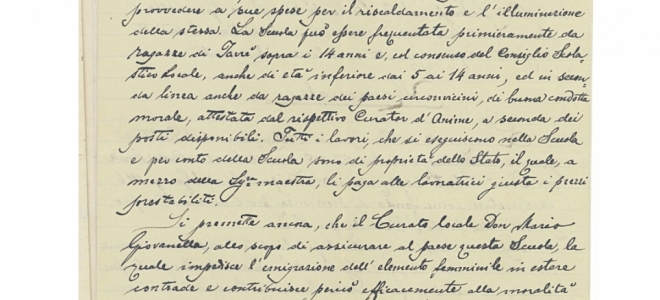 provvedere a sue spese per il riscaldamento e l'illuminazione
della stessa. La Scuola può essere frequentata primieramente da
ragazze di Darè sopra i 14 anni e, col consenso del Consiglio Scola-
stico Locale, anche di età inferiore dai 5 ai 14 anni, ed in secon-
da linea anche da ragazze dei paesi circonvicini, di buona condotta
morale, attestata dal rispettivo Curator d'Anime, a seconda dei
posti disponibili. Tutti i lavori, che si eseguiscono nella Scuola
e per conto della Scuola sono di proprietà dello Stato, il quale, a
mezzo della Sigra maestra, li paga alle lavoratrici giusta i prezzi
prestabiliti.
Si premette ancora, che il Curato locale Don Mario
Giovanella, allo scopo di assicurare al paese questa Scuola, la
quale impedisce l'emigrazione dell'elemento femminile in estere
contrade e contribuisce perciò efficacemente alla moralità